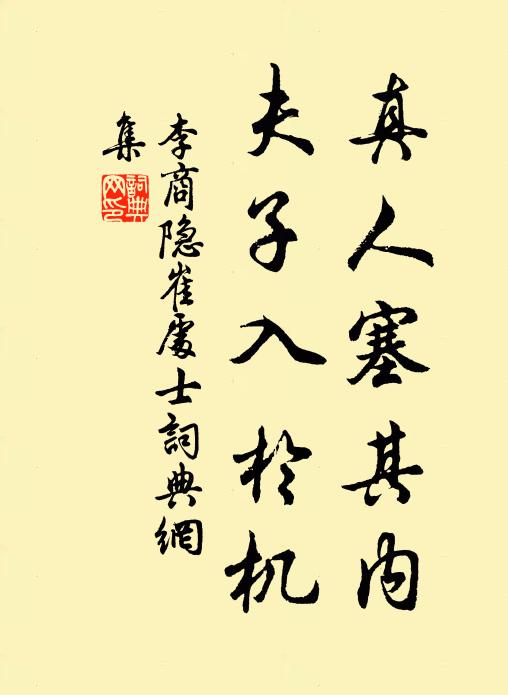 真人塞其内
夫子入於机
李商隐崔處士詞典網
集
詞典
网印